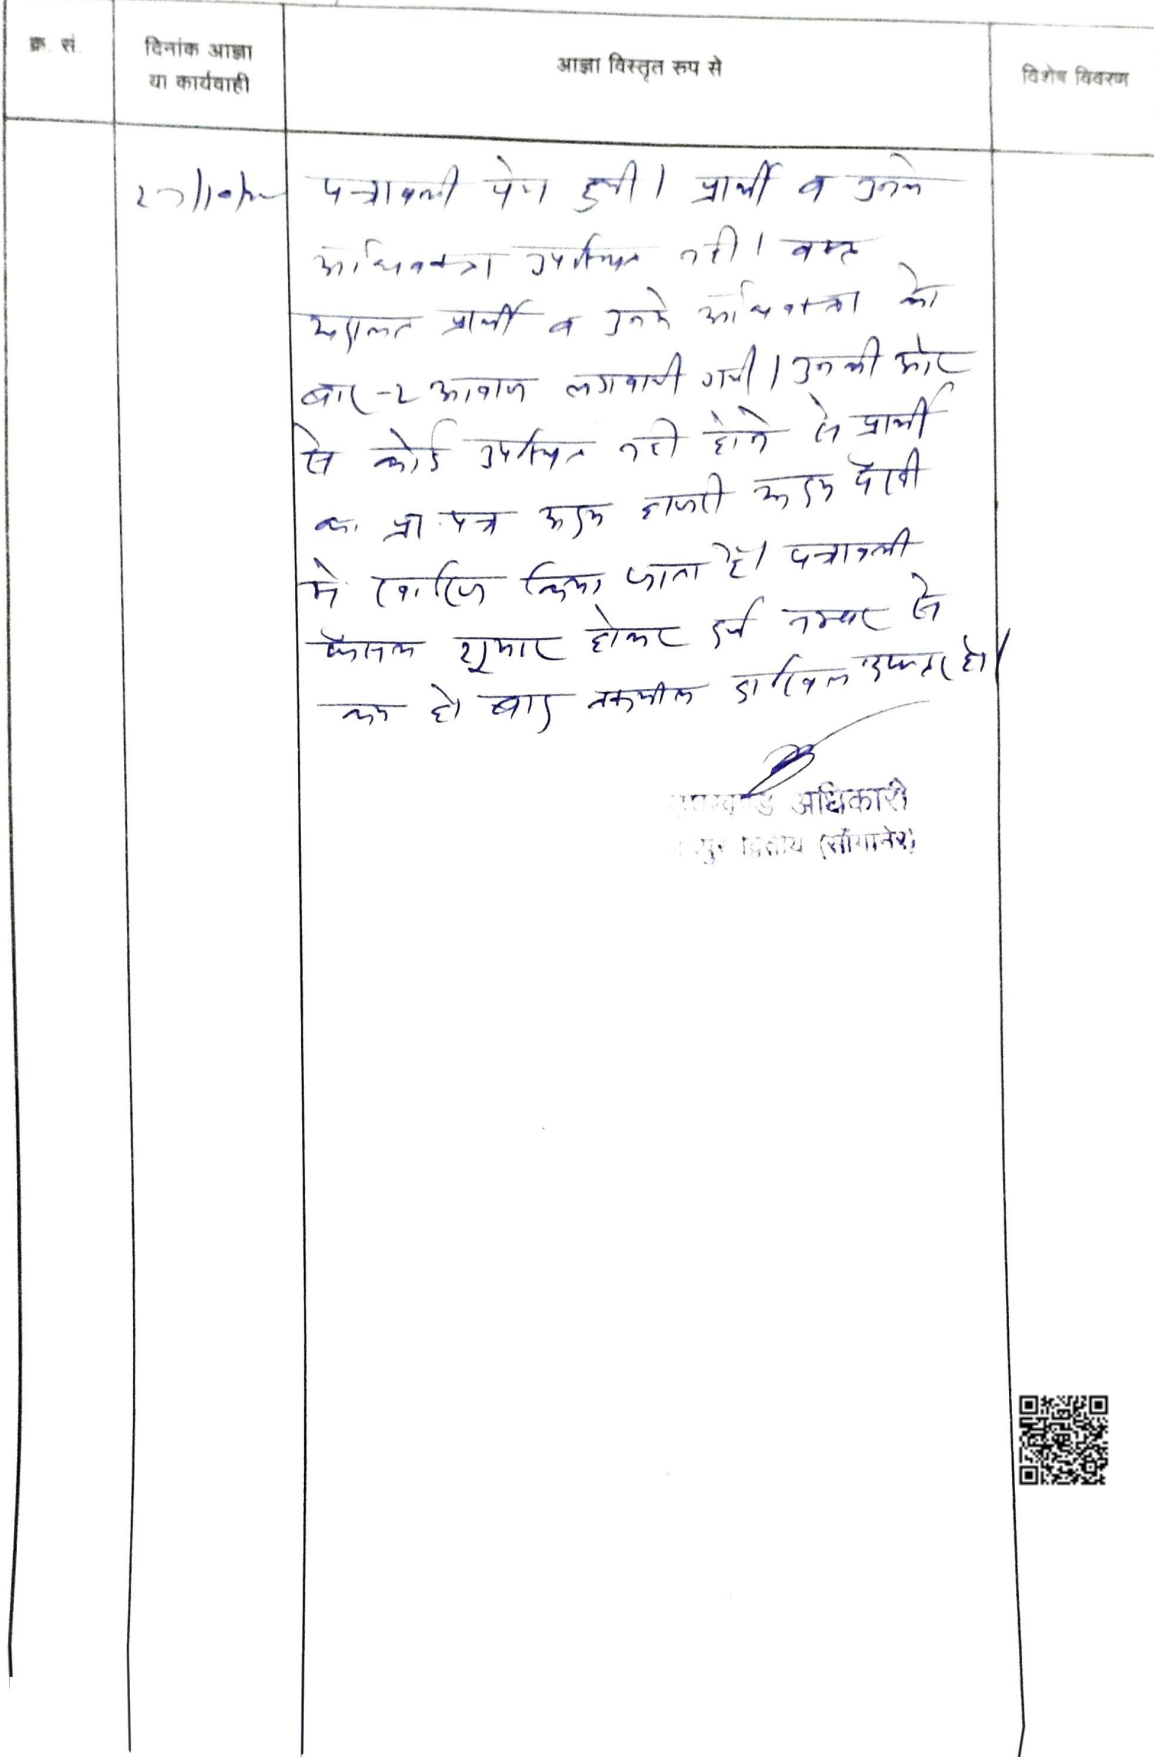 क्र. सं.
दिनांक आज्ञा
या कार्यवाही
आज्ञा विस्तृत रूप से
विशेष विवरण
पत्रावली पेश हुयी। प्रार्थी व उनके
अधिवक्ता उपस्थित नही। वक्त
अदालत प्रार्थी व उनके अधिवक्ता को
बार-2 आवाज लगवायी गयी। उनकी ओर
से कोई उपस्थित नही होने से प्रार्थी
का प्रा. पत्र अदम हाजरी अदम पैरवी
मे खारिज किया जाता है। पत्रावली
फैसल शुमार होकर दर्ज नम्बर से
कम हो बाद तकमील दाखिल दफ्तर हो।
अधिकारी
द्वितीय (साँगानेर)